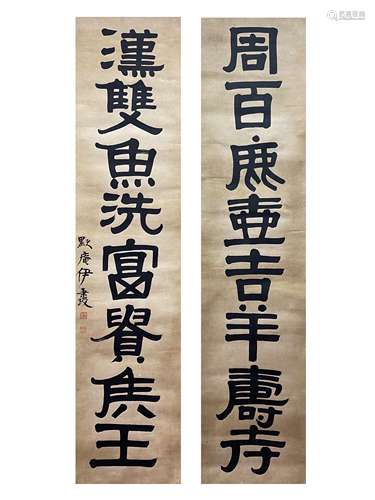 周百鹿壺吉羊壽考
漢雙魚洗富貴侯王
默庵伊